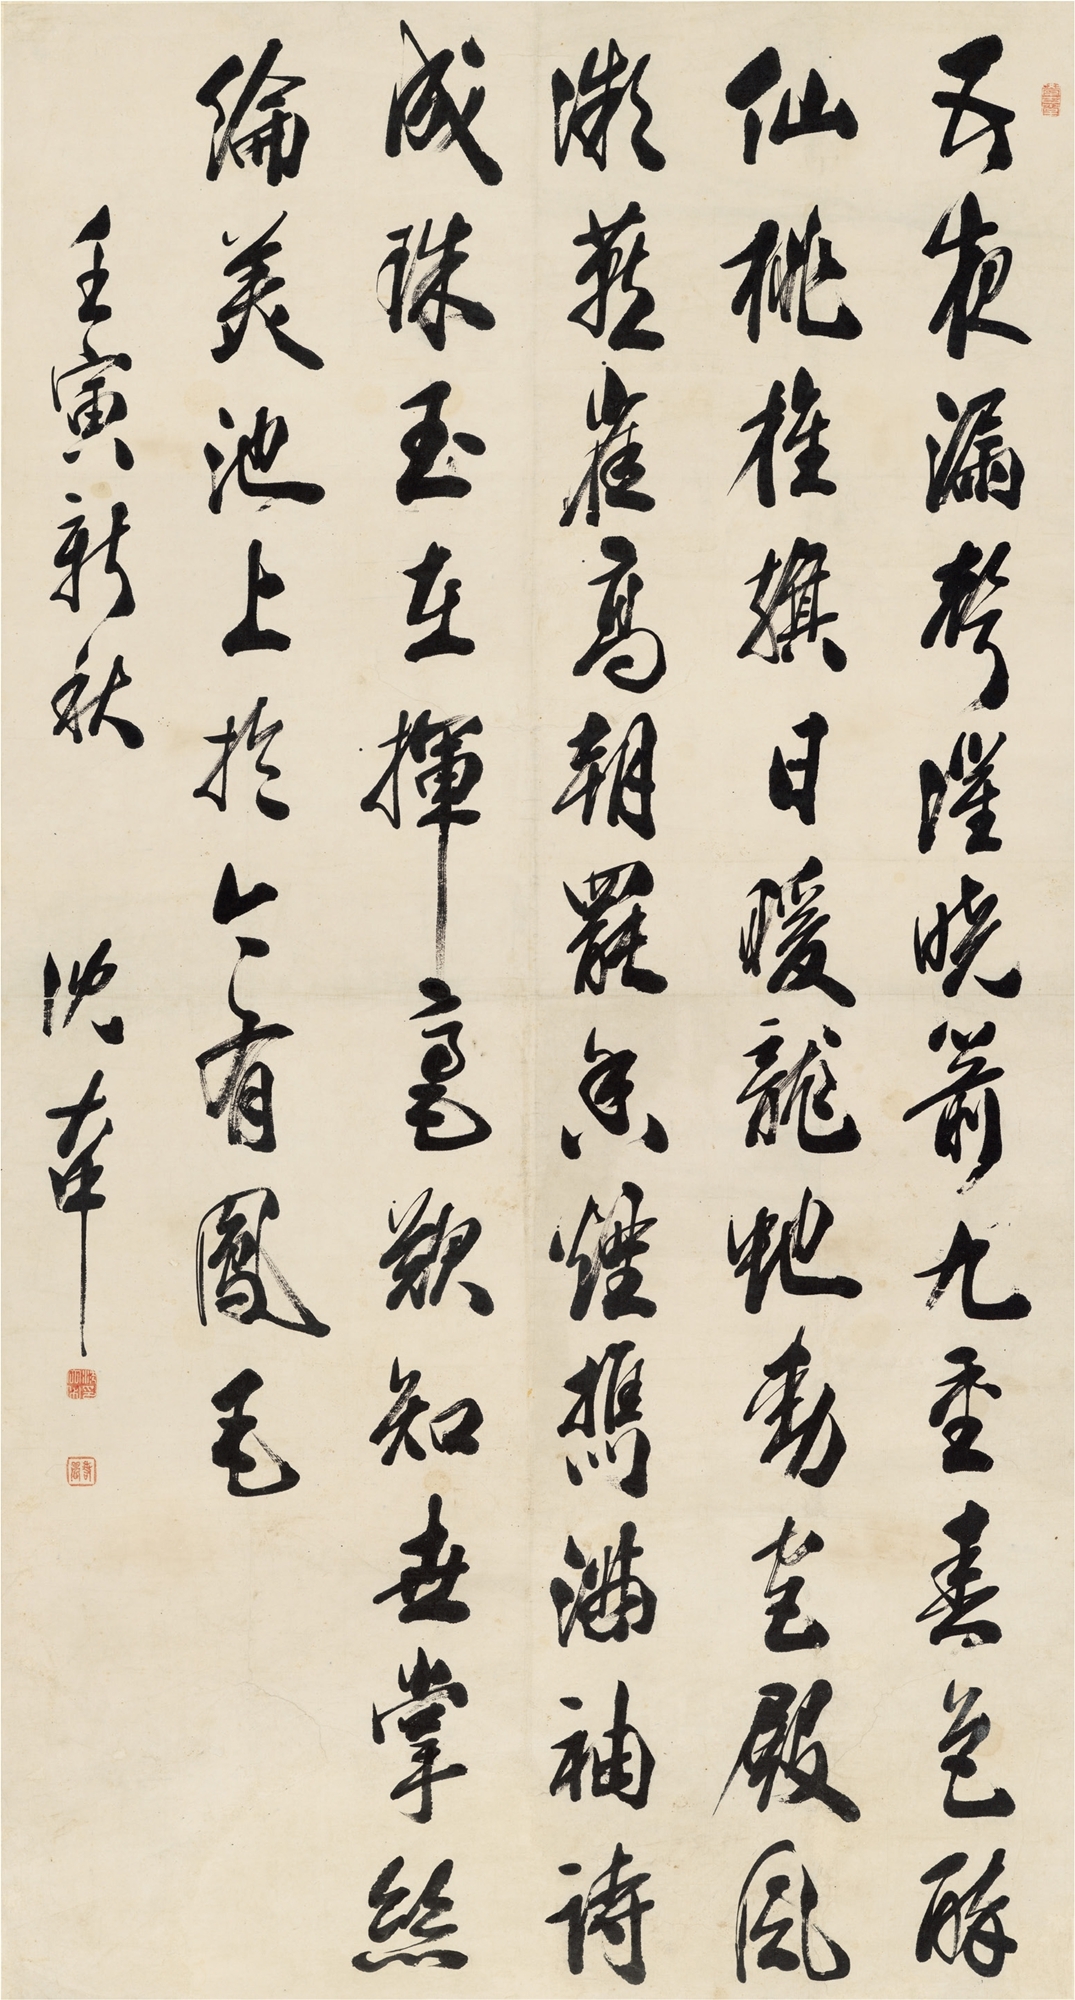 五夜漏聲催曉箭九重春色醉
仙桃旌旗日暖龍蛇動宮殿風
微燕雀高朝罷香煙攜滿袖詩
成珠玉在揮毫欲知世掌絲
綸美池上於今有鳳毛
壬寅新秋
沈荃